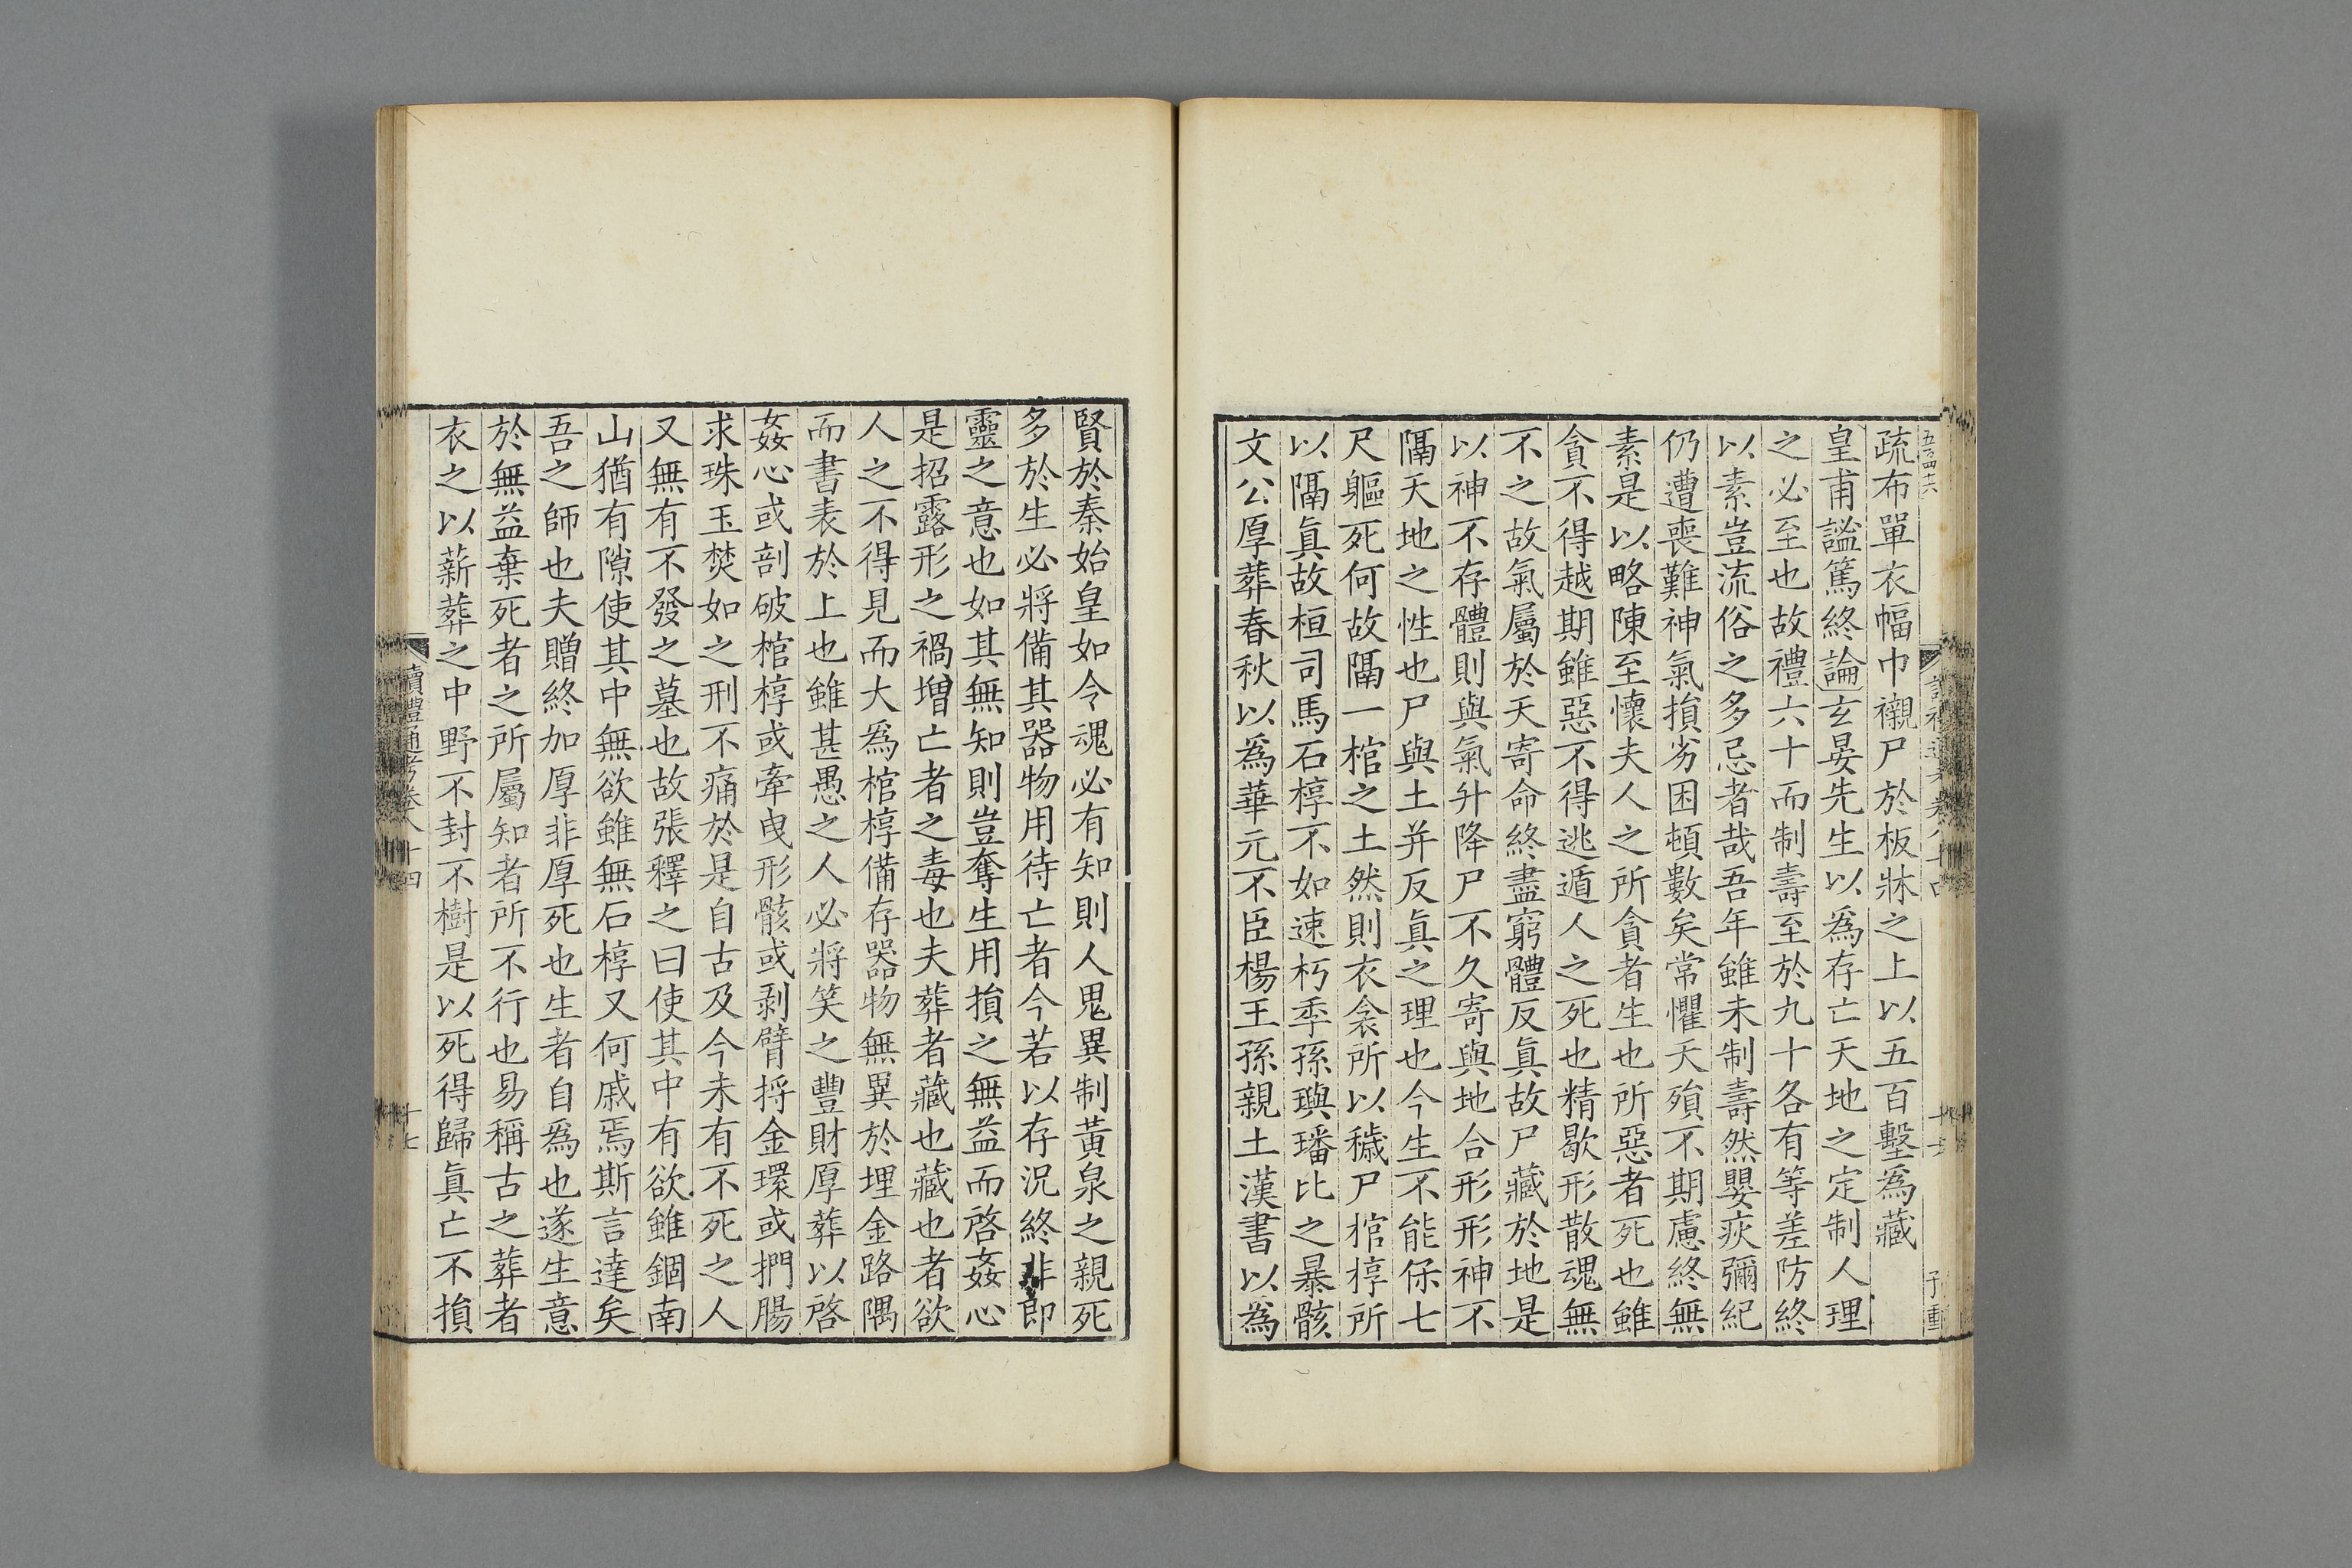 疏布單衣幅巾襯尸於板牀之上以五百墼爲藏
皇甫謐篤終論玄晏先生以爲存亡天地之定制人理
之必至也故禮六十而制壽至於九十各有等差防終
以素豈流俗之多忌者哉吾年雖未制壽然嬰疢彌紀
仍遭喪難神氣損劣困頓數矣常懼夭殞不期慮終無
素是以略陳至懷夫人之所貪者生也所惡者死也雖
貪不得越期雖惡不得逃遁人之死也精歇形散魂無
不之故氣屬於天寄命終盡窮體反眞故尸藏於地是
以神不存體則與氣升降尸不久寄與地合形形神不
隔天地之性也尸與土并反眞之理也今生不能保七
尺軀死何故隔一棺之土然則衣衾所以穢尸棺椁所
以隔眞故桓司馬石椁不如速朽季孫璵璠比之暴骸
文公厚葬春秋以爲華元不臣楊王孫親土漢書以為
賢於秦始皇如令魂必有知則人鬼異制黃泉之親死
多於生必將備其器物用待亡者今若以存況終非即
靈之意也如其無知則豈奪生用損之無益而啓姦心
是招露形之禍增亡者之毒也夫葬者藏也藏也者欲
人之不得見而大爲棺椁備存器物無異於埋金路隅
而書表於上也雖甚愚之人必將笑之豐財厚葬以啓
姦心或剖破棺椁或牽曳形骸或剥臂捋金環或捫腸
求珠玉焚如之刑不痛於是自古及今未有不死之人
又無有不發之墓也故張釋之曰使其中有欲雖錮南
山猶有隙使其中無欲雖無石椁又何戚焉斯言達矣
吾之師也夫贈終加厚非厚死也生者自爲也遂生意
於無益棄死者之所屬知者所不行也易稱古之葬者
衣之以薪葬之中野不封不樹是以死得歸眞亡不損
讀禮通考卷八十四
十七